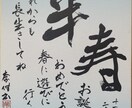 半寿
お
おめでとう
春に遊びに
行く
れからも
長生きしてね